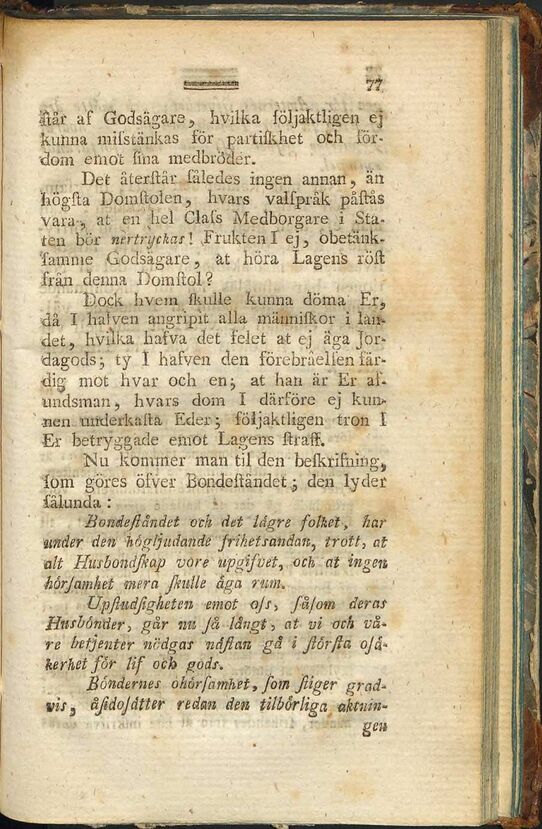 77
står af Godsägare, hvilka följaktligen ej
kunna misstänkas för partiskhet och för-
dom emot sina medbröder.
Det återstår således ingen annan, än
högsta Domstolen, hvars valspråk påstås
vara, at en hel Class Medborgare i Sta-
ten bör nertryckas! Frukten I ej, obetänk-
samme Godsägare, at höra Lagens röst
från denna Domstol?
Dock hvem skulle kunna döma Er,
då I hafven angripit alla människor i lan-
det, hvilka hafva det felet at ej äga Jor-
dagods; ty I hafven den förebråelsen fär-
dig mot hvar och en; at han är Er af-
undsman, hvars dom I därföre ej kun-
nen underkasta Eder; följaktligen tron I
Er betryggade emot Lagens straff.
Nu kommer man til den beskrifning,
som göres öfver Bondeståndet; den lyder
sålunda:
Bondeståndet och det lägre folket, har
under den högljudande frihetsandan, trott, at
alt Husbondskap vore upgifvet, och at ingen
hörsamhet mera skulle äga rum.
Upstudsigheten emot oss, såsom deras
Husbönder, går nu så långt, at vi och vå-
re betjenter nödgas nästan gå i största osä-
kerhet för lif och gods.
Böndernes ohörsamhet, som stiger grad-
vis, åsidosätter redan den tilbörliga aktnin-
gen